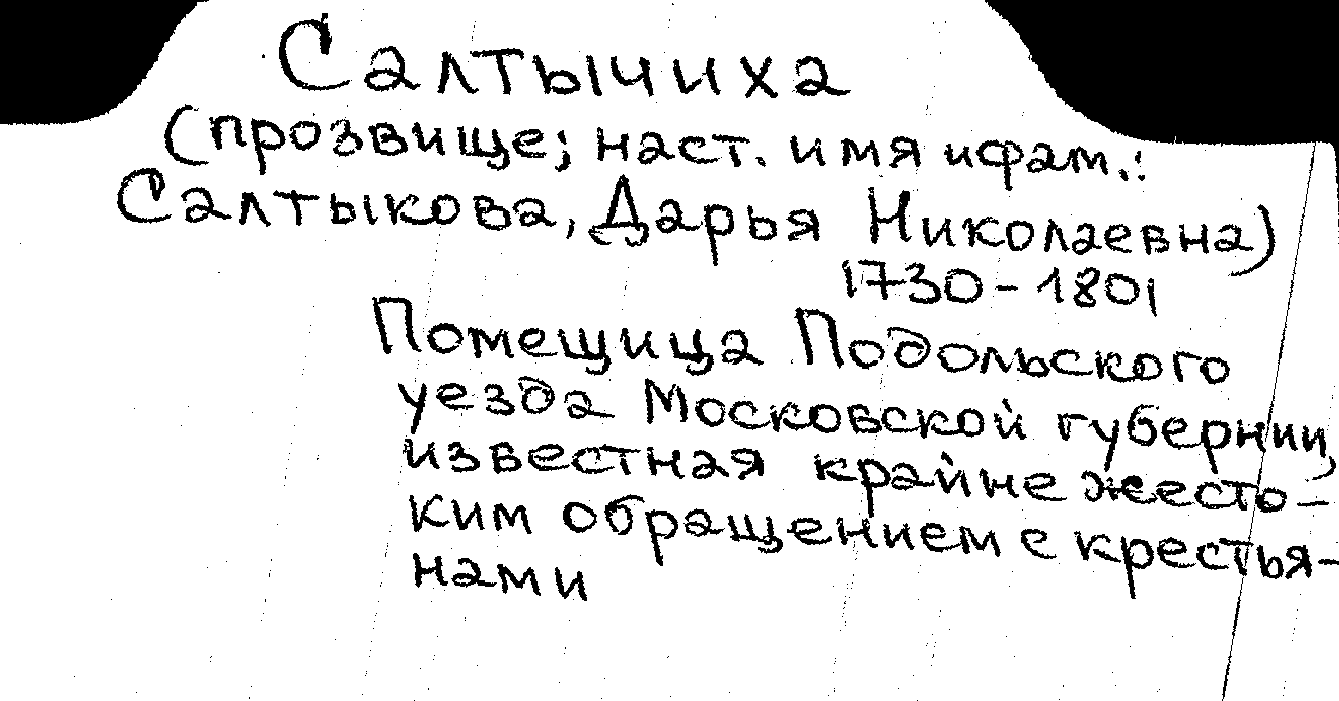 Салтычиха
(прозвище; наст. имя и фам.:
Салтыкова, Дарья Николаевна)
1730-1801
Помещица Подольского
уезда Московской губернии,
известная крайне жесто-
ким обращением с крестья-
нами